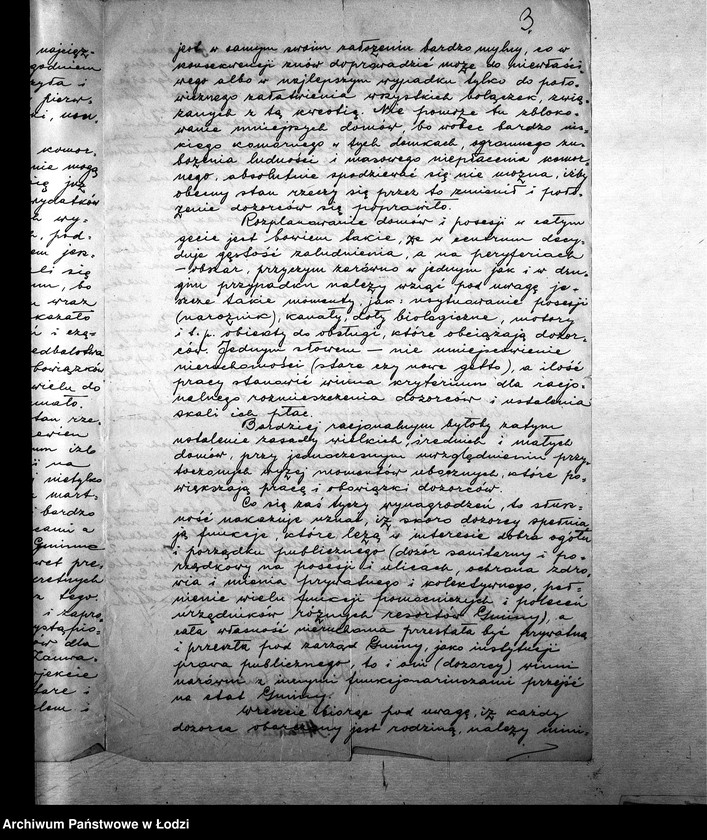 3
jest w samym swoim założeniu bardzo mylny, co w
konsekwencji znów doprowadzić może do niewłaści-
wego albo w najlepszym wypadku tylko do poło-
wicznego załatwienia wszystkich bolączek, zwią-
zanych z tą kwestią. Nie pomoże tu zbloko-
wanie mniejszych domów, bo wobec bardzo nis-
kiego komornego w tych domkach, ogromnego zu-
bożenia ludności i masowego niepłacenia komor-
nego, absolutnie spodziewać się nie można, iżby
obecny stan rzeczy się przez to zmienił i poło-
żenie dozorców się poprawiło.
Rozplanowanie domów i posesji w całym
gecie jest bowiem takie, że w centrum decy-
duje gęstość zaludnienia, a na peryferiach
— obszar, przyczym zarówno w jednym jak i w dru-
gim przypadku należy wziąć pod uwagę je-
szcze takie momenty, jak: usytuowanie posesji
(narożnik), kanały, doły biologiczne, motory
i t. p. objekty do obsługi, które obciążają dozor-
ców. Jednym słowem — nie umiejscowienie
nieruchomości (stare czy nowe getto), a ilość
pracy stanowić winna kryterium dla racjo-
nalnego rozmieszczenia dozorców i ustalenia
skali ich płac.
Bardziej racjonalnym byłoby zatym
ustalenie zasady wielkich, średnich i małych
domów, przy jednoczesnym uwzględnieniu przy-
toczonych wyżej momentów ubocznych, które po-
większają pracę i obowiązki dozorców.
Co się zaś tyczy wynagrodzeń, to słusz-
ność nakazuje uznać, iż skoro dozorcy spełnia-
ją funkcje, które leżą w interesie dobra ogółu
i porządku publicznego (dozór sanitarny i po-
rządkowy na posesji i ulicach, ochrona zdro-
wia i mienia prywatnego i kolektywnego, peł-
nienie wielu funkcji pomocniczych i poleceń
urzędników różnych resortów Gminy), a
cała własność nieruchoma przestała być prywatną
i przeszła pod zarząd Gminy, jako instytucji
prawa publicznego, to i oni (dozorcy) winni
narówni z innymi funkcjonariuszami przejść
na etat Gminy.
Wreszcie biorąc pod uwagę, iż każdy
dozorca obarczony jest rodziną, należy mini-
Archiwum Państwowe w Łodzi